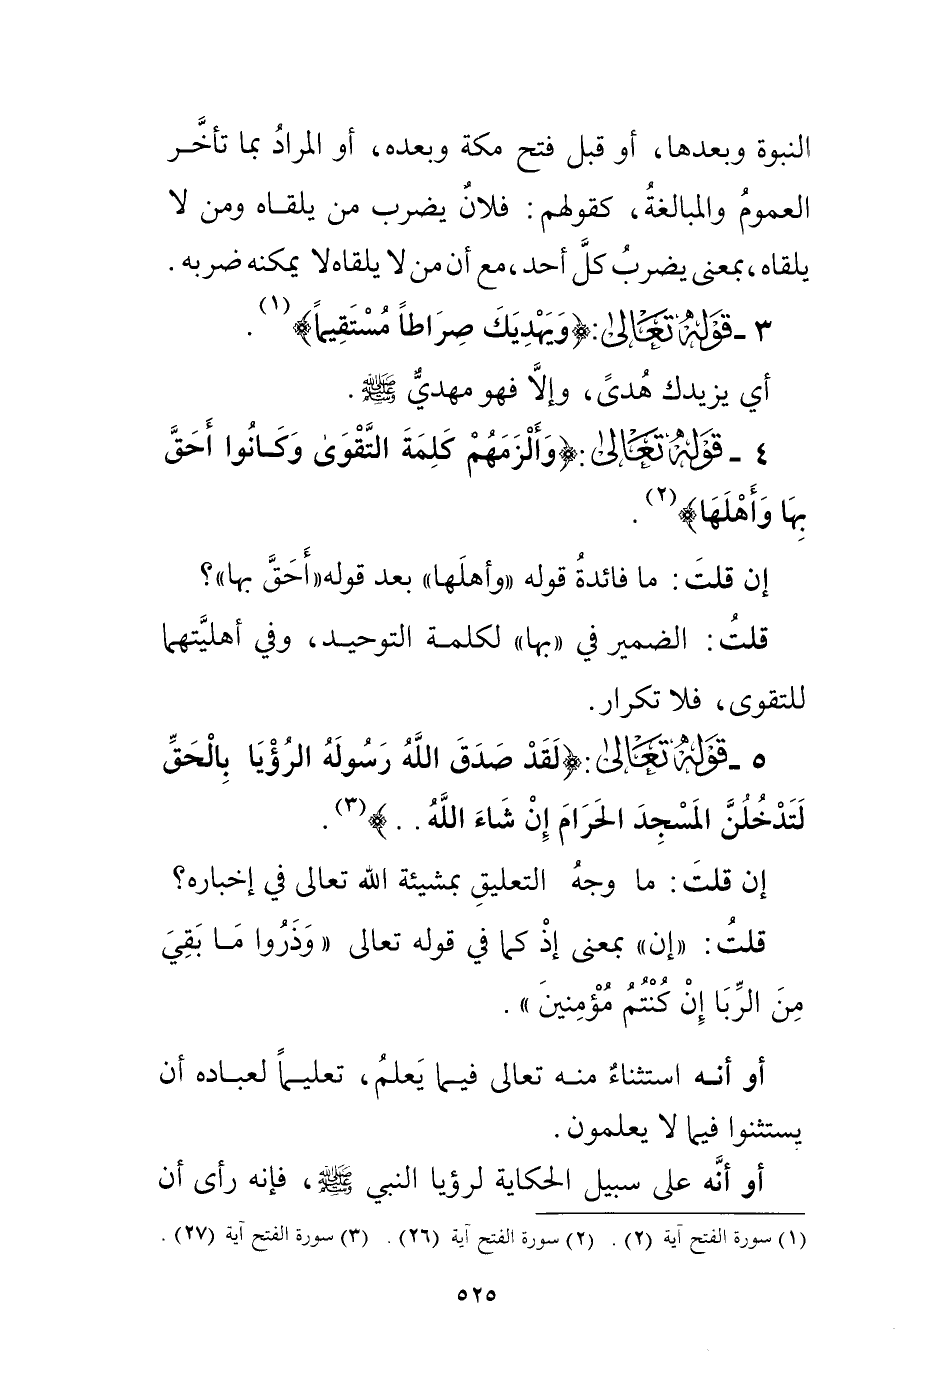 النبوة وبعدها، أو قبل فتح مكة وبعده، أو المرادُ بما تأخَّر
العمومُ والمبالغةُ، كقولهم: فلانٌ يضرب من يلقاه ومن لا
يلقاه، بمعنى يضربُ كلَّ أحد، مع أن من لا يلقاه لا يمكنه ضربه.
٣ ـ قَوْلُهُ تَعَالَىٰ: ﴿وَيَهْدِيَكَ صِرَاطاً مُسْتَقِيماً﴾(١).
أي يزيدك هُدىً، وإلَّا فهو مهديٌّ ﷺ.
٤ ـ قَوْلُهُ تَعَالَىٰ: ﴿وَأَلْزَمَهُمْ كَلِمَةَ التَّقْوَىٰ وَكَانُوا أَحَقَّ
بِهَا وَأَهْلَهَا﴾(٢).
إن قلتَ: ما فائدةُ قوله «وأهلَها» بعد قوله «أَحَقَّ بها»؟
قلتُ: الضمير في «بها» لكلمة التوحيد، وفي أهليَّتهما
للتقوى، فلا تكرار.
٥ ـ قَوْلُهُ تَعَالَىٰ: ﴿لَقَدْ صَدَقَ اللَّهُ رَسُولَهُ الرُّؤْيَا بِالْحَقِّ
لَتَدْخُلُنَّ المَسْجِدَ الحَرَامَ إِنْ شَاءَ اللَّهُ . .﴾(٣).
إن قلتَ: ما وجهُ التعليقِ بمشيئة الله تعالى في إخباره؟
قلتُ: «إن» بمعنى إذْ كما في قوله تعالى «وَذَرُوا مَا بَقِيَ
مِنَ الرِّبَا إِنْ كُنْتُمْ مُؤْمِنينَ».
أو أنه استثناءٌ منه تعالى فيما يَعلمُ، تعليماً لعباده أن
يستثنوا فيما لا يعلمون.
أو أنَّه على سبيل الحكاية لرؤيا النبي ﷺ، فإنه رأى أن
(١) سورة الفتح آية (٢). (٢) سورة الفتح آية (٢٦). (٣) سورة الفتح آية (٢٧).
٥٢٥